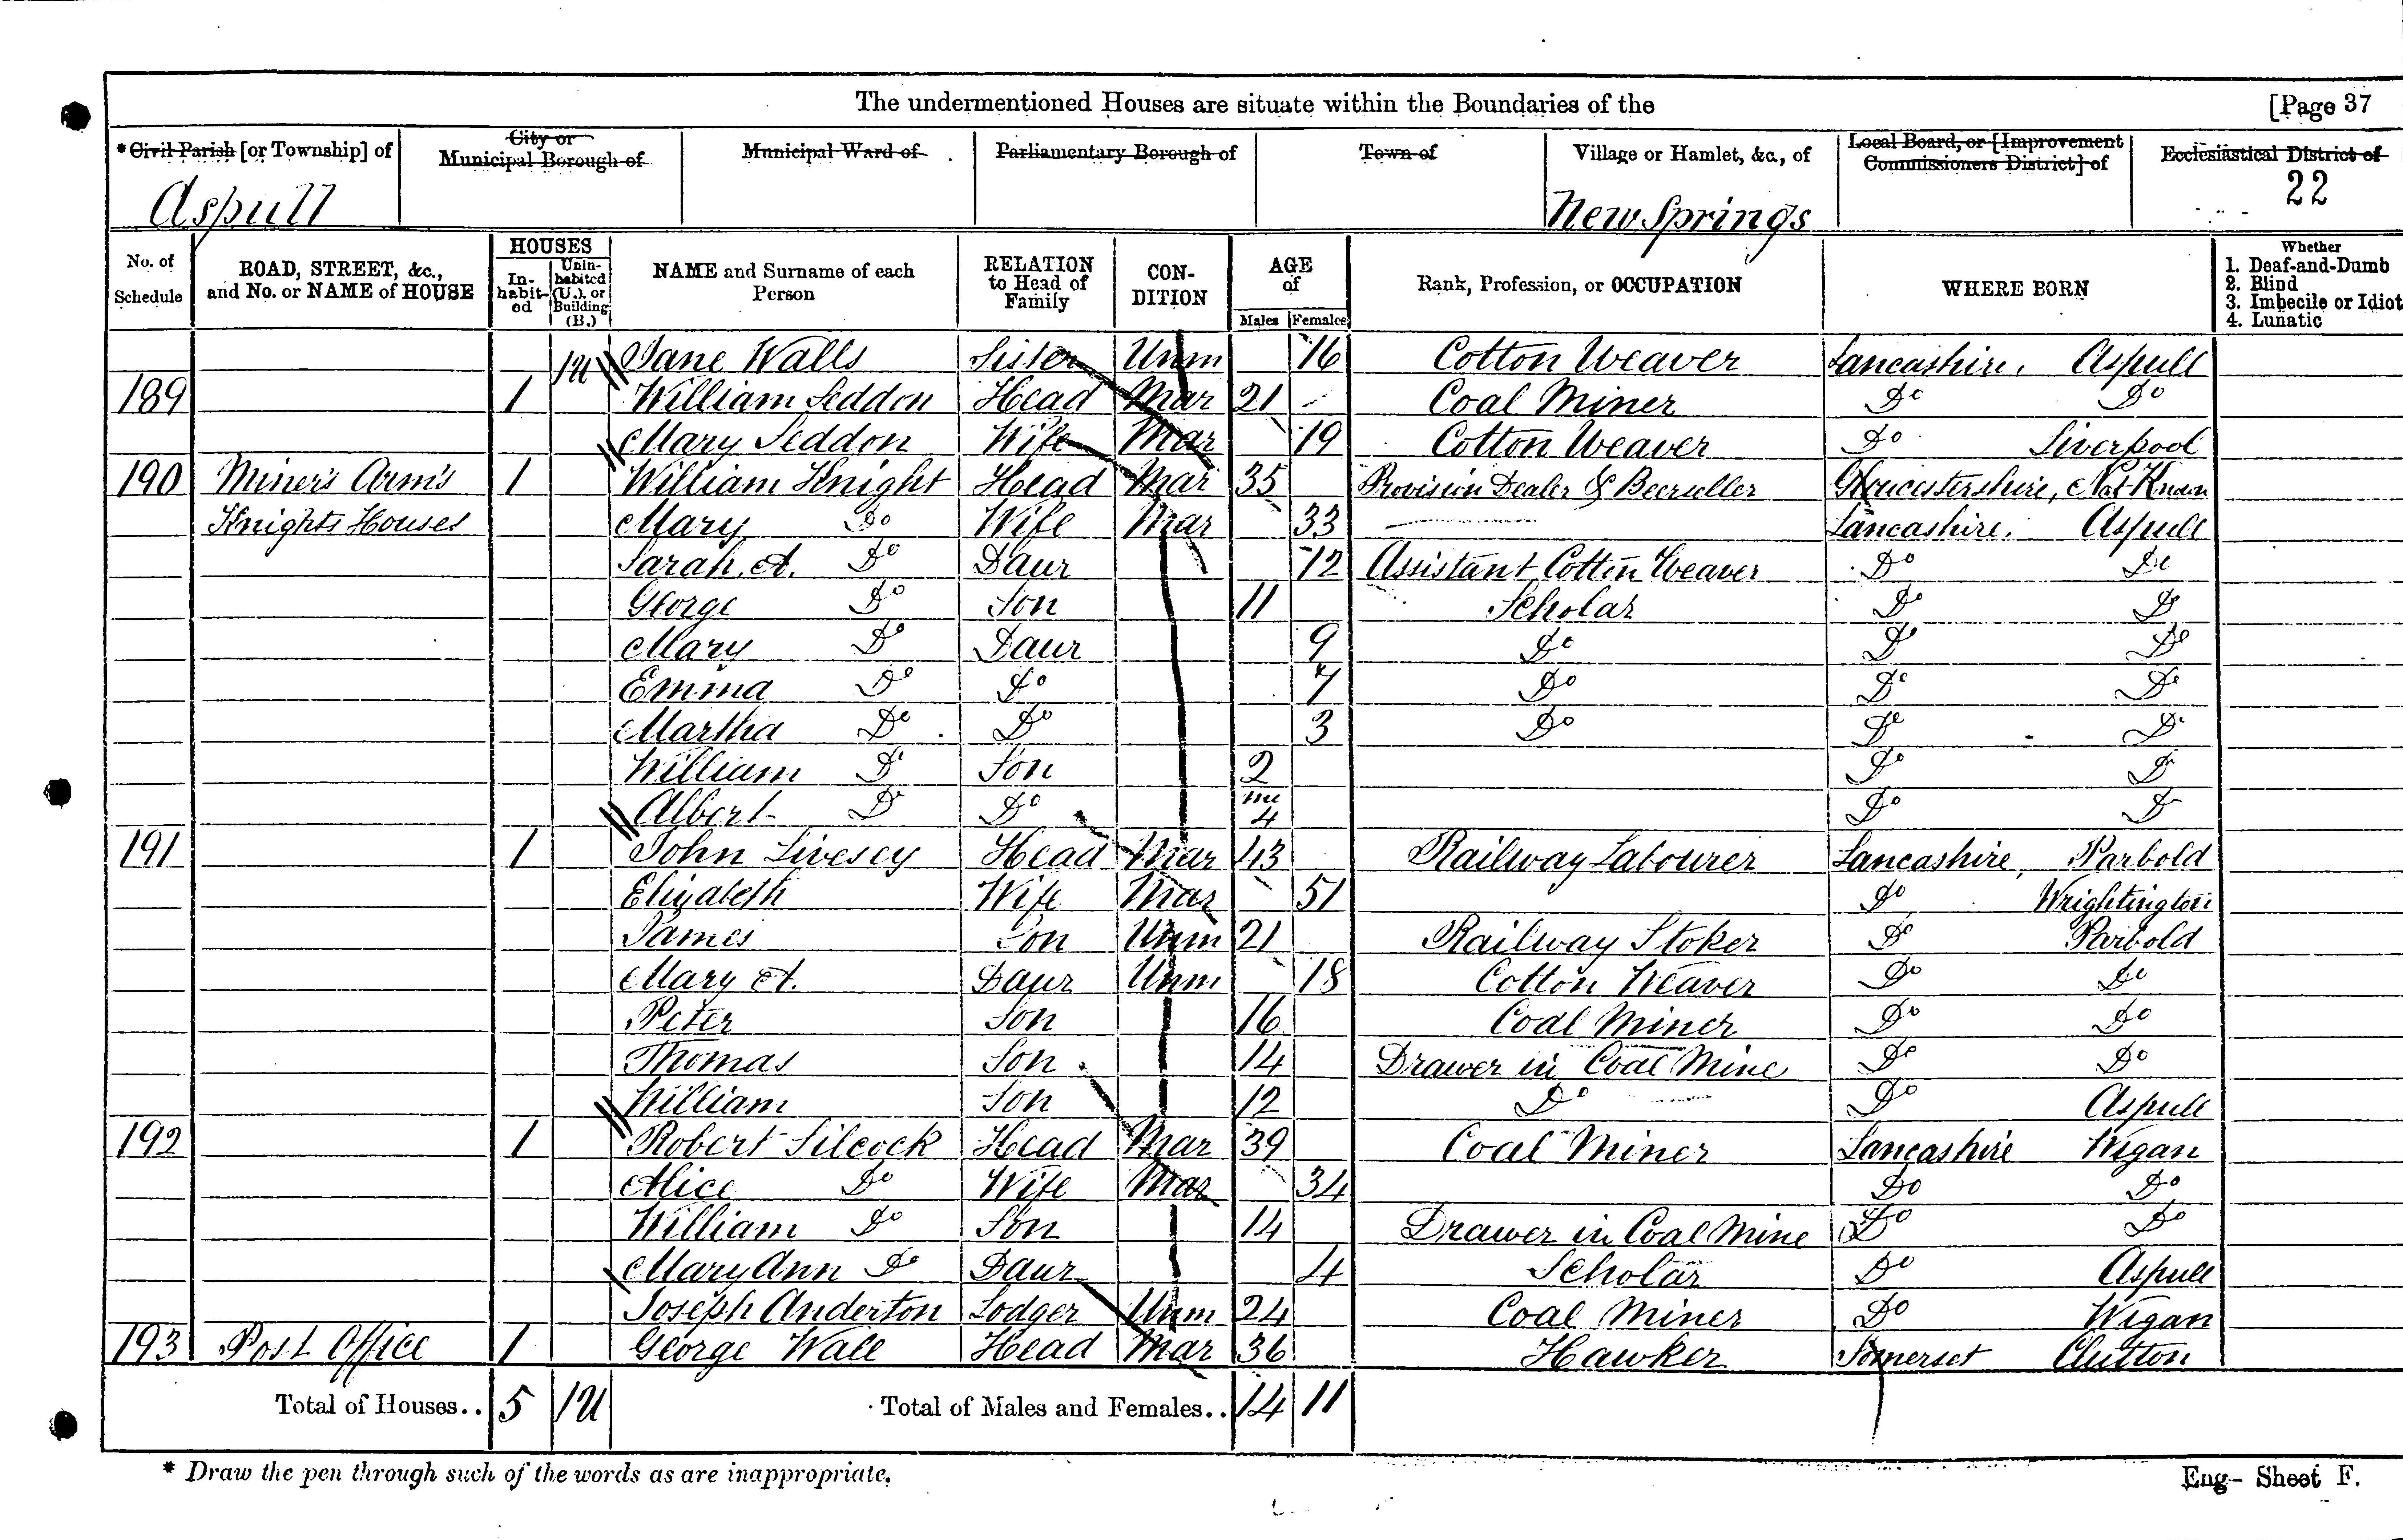 The undermentioned Houses are situate within the Boundaries of the [Page 37
*Civil Parish [or Township] of City or Municipal Borough of Municipal Ward of Parliamentary Borough of Town of Village or Hamlet, &c., of Local Board, or [Improvement Commissioners District] of Ecclesiastical District of
Aspull New Springs 22
No. of Schedule ROAD, STREET, &c., and No. or NAME of HOUSE HOUSES Inhabited Uninhabited (U.), or Building (B.) NAME and Surname of each Person RELATION to Head of Family CONDITION AGE of Males Females Rank, Profession, or OCCUPATION WHERE BORN Whether 1. Deaf-and-Dumb 2. Blind 3. Imbecile or Idiot 4. Lunatic
1U Jane Walls Sister Unm 16 Cotton Weaver Lancashire, Aspull
189 1 William Seddon Head Mar 21 Coal Miner Do Do
Mary Seddon Wife Mar 19 Cotton Weaver Do Liverpool
190 Miner's Arm's 1 William Knight Head Mar 35 Provision Dealer & Beerseller Gloucestershire, Not Known
Knights Houses Mary Do Wife Mar 33 Lancashire, Aspull
Sarah. A. Do Daur 12 Assistant Cotton Weaver Do Do
George Do Son 11 Scholar Do Do
Mary Do Daur 9 Do Do Do
Emma Do Do 7 Do Do Do
Martha Do Do 3 Do Do Do
William Do Son 2 Do Do
Albert Do Do mo 4 Do Do
191 1 John Livesey Head Mar 43 Railway Labourer Lancashire, Parbold
Elizabeth Wife Mar 51 Do Wrightington
James Son Unm 21 Railway Stoker Do Parbold
Mary A. Daur Unm 18 Cotton Weaver Do Do
Peter Son 16 Coal Miner Do Do
Thomas Son 14 Drawer in Coal Mine Do Do
William Son 12 Do Do Aspull
192 1 Robert Silcock Head Mar 39 Coal Miner Lancashire Wigan
Alice Do Wife Mar 34 Do Do
William Do Son 14 Drawer in Coal Mine Do Do
Mary Ann Do Daur 4 Scholar Do Aspull
Joseph Anderton Lodger Unm 24 Coal Miner Do Wigan
193 Post Office 1 George Wall Head Mar 36 Hawker Somerset Clutton
Total of Houses.. 5 1U Total of Males and Females.. 14 11
* Draw the pen through such of the words as are inappropriate.
Eng- Sheet F.